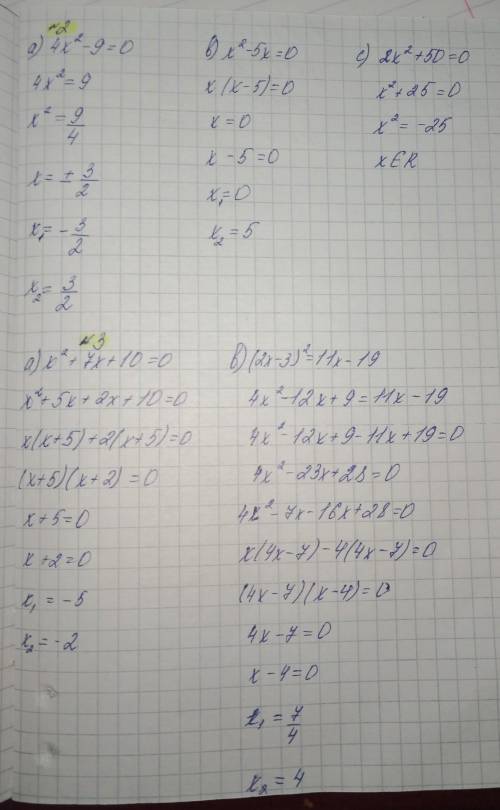 №2
a) 4x²-9=0
4x²=9
x²=9/4
x=±3/2
x₁=-3/2
x₂=3/2
в) x²-5x=0
x(x-5)=0
x=0
x-5=0
x₁=0
x₂=5
c) 2x²+50=0
x²+25=0
x²=-25
x∈R
№3
a) x²+7x+10=0
x²+5x+2x+10=0
x(x+5)+2(x+5)=0
(x+5)(x+2)=0
x+5=0
x+2=0
x₁=-5
x₂=-2
в) (2x-3)²=11x-19
4x²-12x+9=11x-19
4x²-12x+9-11x+19=0
4x²-23x+28=0
4x²-7x-16x+28=0
x(4x-7)-4(4x-7)=0
(4x-7)(x-4)=0
4x-7=0
x-4=0
x₁=7/4
x₂=4